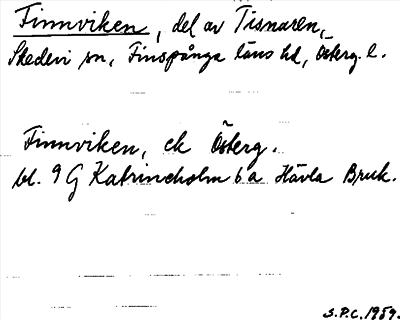 Finnviken, del av Tisnaren,
Skedevi sn, Finspånga läns hd, Österg. l.
Finnviken, ek Österg.
bl. 9 G Katrineholm 6 a Hävla Bruk.
S.P.C. 1959.